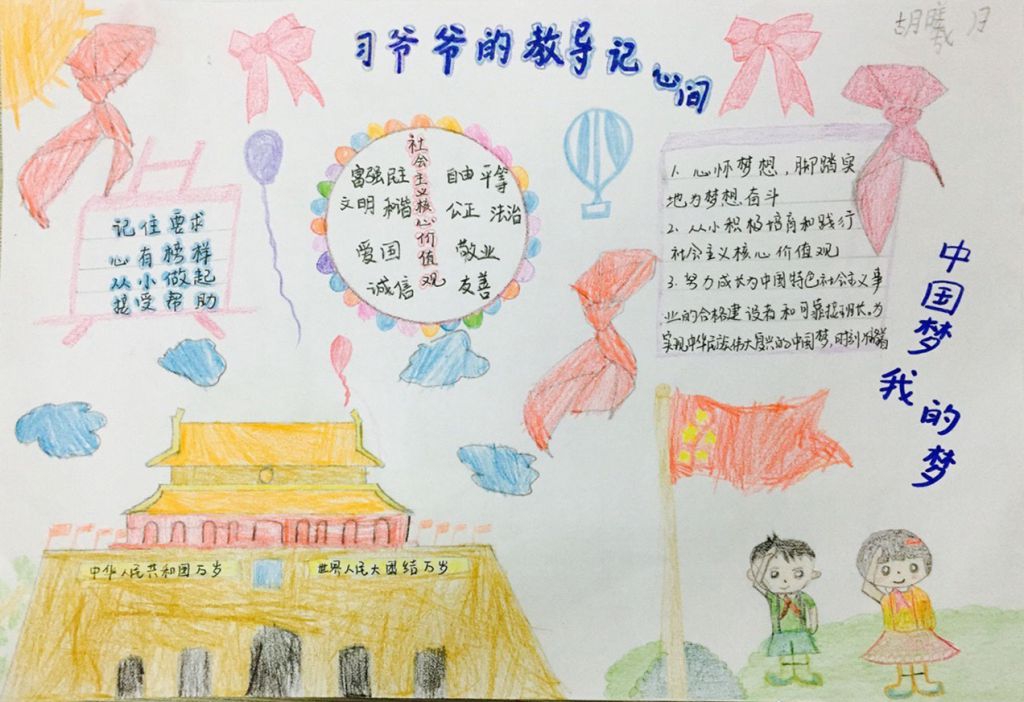 习爷爷的教导记心间
胡曦月
记住要求
心有榜样
从小做起
接受帮助
社会主义核心价值观
富强民主
自由平等
文明和谐
公正法治
爱国
敬业
诚信
友善
1.心怀梦想,脚踏实
地为梦想奋斗
2.从小积极培育和践行
社会主义核心价值观
3.努力成长为中国特色社会主义事
业的合格建设者和可靠接班人。为
实现中华民族伟大复兴的中国梦,时刻准备着
中国梦
我的梦
中华人民共和国万岁
世界人民大团结万岁